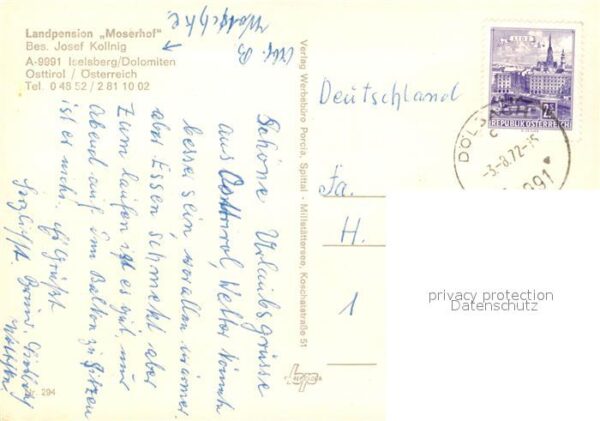 Landpension „Moserhof"
Bes. Josef Kollnig
A-9991 Iselsberg/Dolomiten
Osttirol / Österreich
Tel. 0 48 52 / 2 81 10 02
Schöne Urlaubsgrüsse
aus Osttirol, Wetter könnte
besser sein, vor allen wärmer.
aber Essen schmeckt aber
zum laufen ist es gut, nur
Abend auf dem Balkon zu sitzen
ist es nichts. Es grüßt
herzlichst
Nr. 294
Verlag Werbebüro Porcia, Spittal - Millstättersee, Koschatstraße 51
LINZ
REPUBLIK ÖSTERREICH
DÖLS
-3.-8.72-15
9991
Deutschland
Fa.
H.
1
privacy protection
Datenschutz